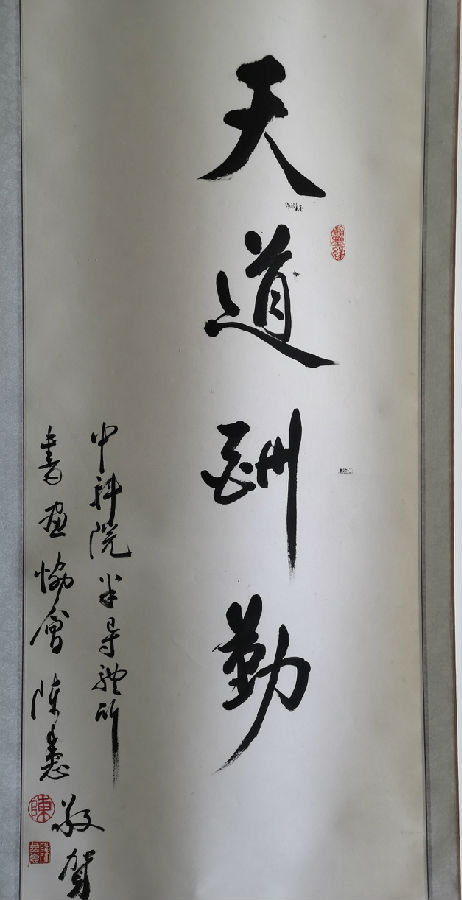 天道酬勤
中科院半导体所
书画協會 陈
敬贺